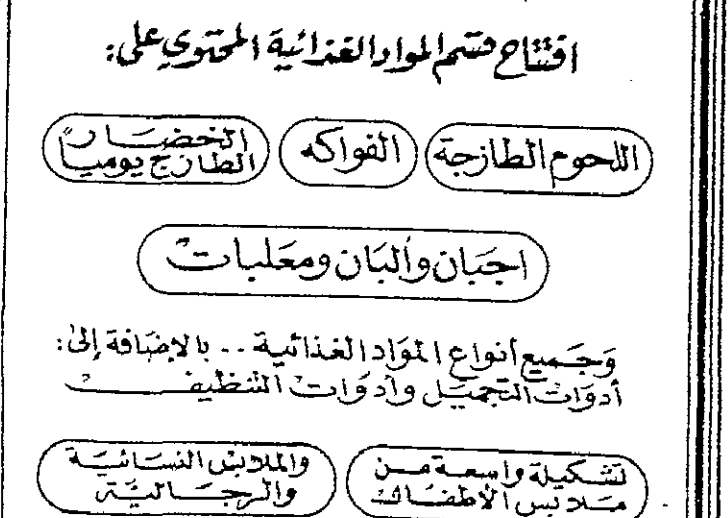 افتتاح قسم المواد الغذائية المحتوي على:
اللحوم الطازجة
الفواكه
الخضار الطازج يومياً
اجبان وألبان ومعلبات
وجميع أنواع المواد الغذائية .. بالإضافة إلى:
أدوات التجميل وأدوات التنظيف
تشكيلة واسعة من
ملابس الأطفال
والملابس النسائية
والرجالية